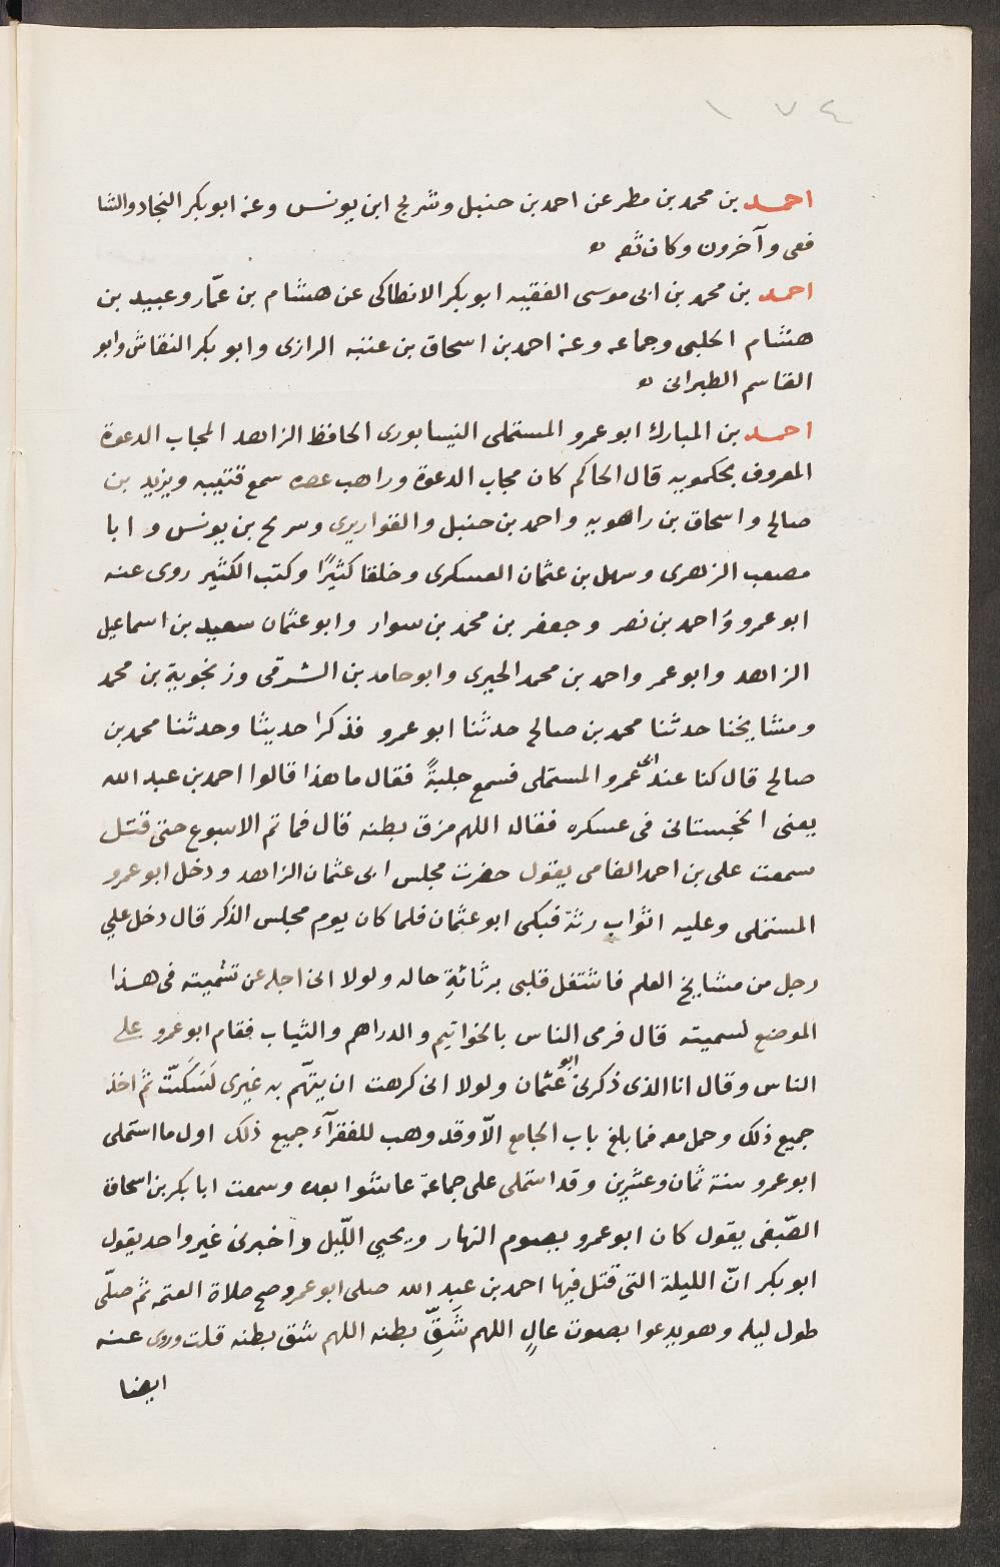 ١٧٤
احمد بن محمد بن مطر عن احمد بن حنبل وشريح ابن يونس وعنه ابو بكر النجاد والشا
فعى وآخرون وكان ثقه
احمد بن محمد بن ابى موسى الفقيه ابو بكر الانطاكى عن هشام بن عمّار وعبيد بن
هشام الحلبى وجماعه وعنه احمد بن اسحاق بن عتبه الرازى وابو بكر النقاش وابو
القاسم الطبرانى
احمد بن المبارك ابو عمرو المستملى النيسابورى الحافظ الزاهد المجاب الدعوة
المعروف بحكمويه قال الحاكم كان مجاب الدعوة وراهب عصره سمع قتيبه ويزيد بن
صالح واسحاق بن راهويه واحمد بن حنبل والقواريرى وسريح بن يونس و ابا
مصعب الزهرى وسهل بن عثمان العسكرى وخلقا كثيرًا وكتب الكثير روى عنه
ابو عمرو وَاحمد بن نصر وجعفر بن محمد بن سوار وابو عثمان سعيد بن اسماعيل
الزاهد وابو عمر واحمد بن محمد الحيرى وابو حامد بن الشرقى وزنجوية بن محمد
ومشايخنا حدثنا محمد بن صالح حدثنا ابو عمرو فذكرا حديثا وحدثنا محمد بن
صالح قال كنا عند ابى عمرو المستملى فسمع جلبةً فقال ما هذا قالوا احمد بن عبد الله
يعنى الخجستانى فى عسكره فقال اللهم مزق بطنه قال فما تم الاسبوع حتى قتل
سمعت على بن احمد الفامى يقول حضرت مجلس ابى عثمان الزاهد ودخل ابو عمرو
المستملى وعليه اثواب رثة فبكى ابو عثمان فلما كان يوم مجلس الذكر قال دخل علي
رجل من مشايخ العلم فاشتغل قلبى برثاثةِ حاله ولولا انى اجله عن تسميته فى هذا
الموضع لسميته قال فرمى الناس بالخواتيم والدراهم والثياب فقام ابو عمرو على
الناس وقال انا الذى ذكرنى ابو عثمان ولولا انى كرهت ان يتهّم به غيرى لَسَكَتّ ثم اخذ
جميع ذلك وحمل معه فما بلغ باب الجامع الاّ وقد وهب للفقرآء جميع ذلك اول ما استملى
ابو عمرو سنة ثمان وعشرين وقد استملى على جماعة عاشوا بعده وسمعت ابا بكر بن اسحاق
الصّبغى يقول كان ابو عمرو يصوم النهار ويحيي اللّيل واخبرنى غير واحد يقول
ابو بكر انّ الليلة التى قتل فيها احمد بن عبد الله صلى ابو عمرو صح صلاة العتمه ثم صلّى
طول ليله وهو يدعوا بصوت عالٍ اللهم شَقِّ بطنه اللهم شق بطنه قلت وروى عنه
ايضا